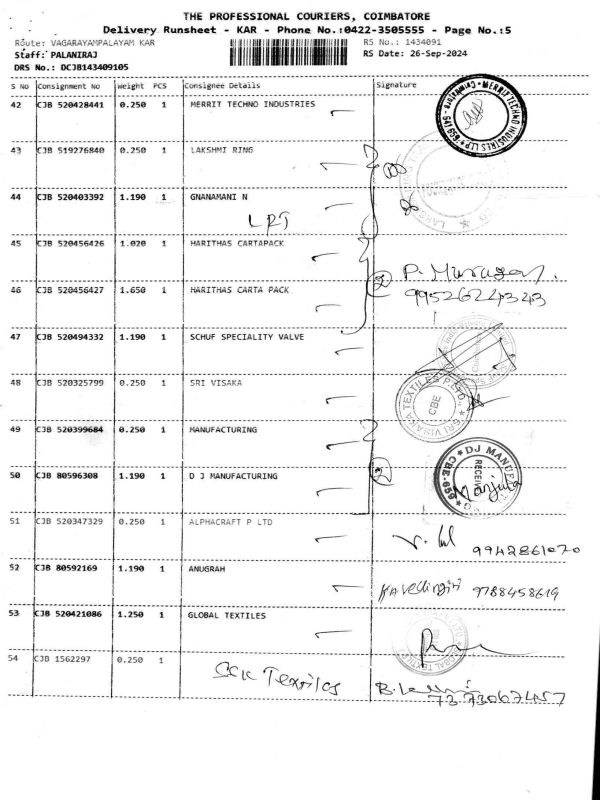 THE PROFESSIONAL COURIERS, COIMBATORE
Delivery Runsheet - KAR - Phone No.:0422-3505555 - Page No.:5
Route: VAGARAYAMPALAYAM KAR RS No.: 1434091
Staff: PALANIRAJ RS Date: 26-Sep-2024
DRS No.: DCJB143409105
S No Consignment No Weight PCS Consignee Details Signature
42 CJB 520428441 0.250 1 MERRIT TECHNO INDUSTRIES
MERRIT TECHNO INDUSTRIES LLP
43 CJB 519276840 0.250 1 LAKSHMI RING
44 CJB 520403392 1.190 1 GNANAMANI N
LRT
45 CJB 520456426 1.020 1 HARITHAS CARTAPACK
2 P. Murugan.
46 CJB 520456427 1.650 1 HARITHAS CARTA PACK 9952624343
47 CJB 520494332 1.190 1 SCHUF SPECIALITY VALVE
48 CJB 520325799 0.250 1 SRI VISAKA
SRI VISAKA TEXTILES P LTD. CBE
49 CJB 520399684 0.250 1 MANUFACTURING
50 CJB 80596308 1.190 1 D J MANUFACTURING 2 Manjula
51 CJB 520347329 0.250 1 ALPHACRAFT P LTD
9942861070
52 CJB 80592169 1.190 1 ANUGRAH
9788458619
53 CJB 520421086 1.250 1 GLOBAL TEXTILES
54 CJB 1562297 0.250 1
SCK Textiles
7373067457